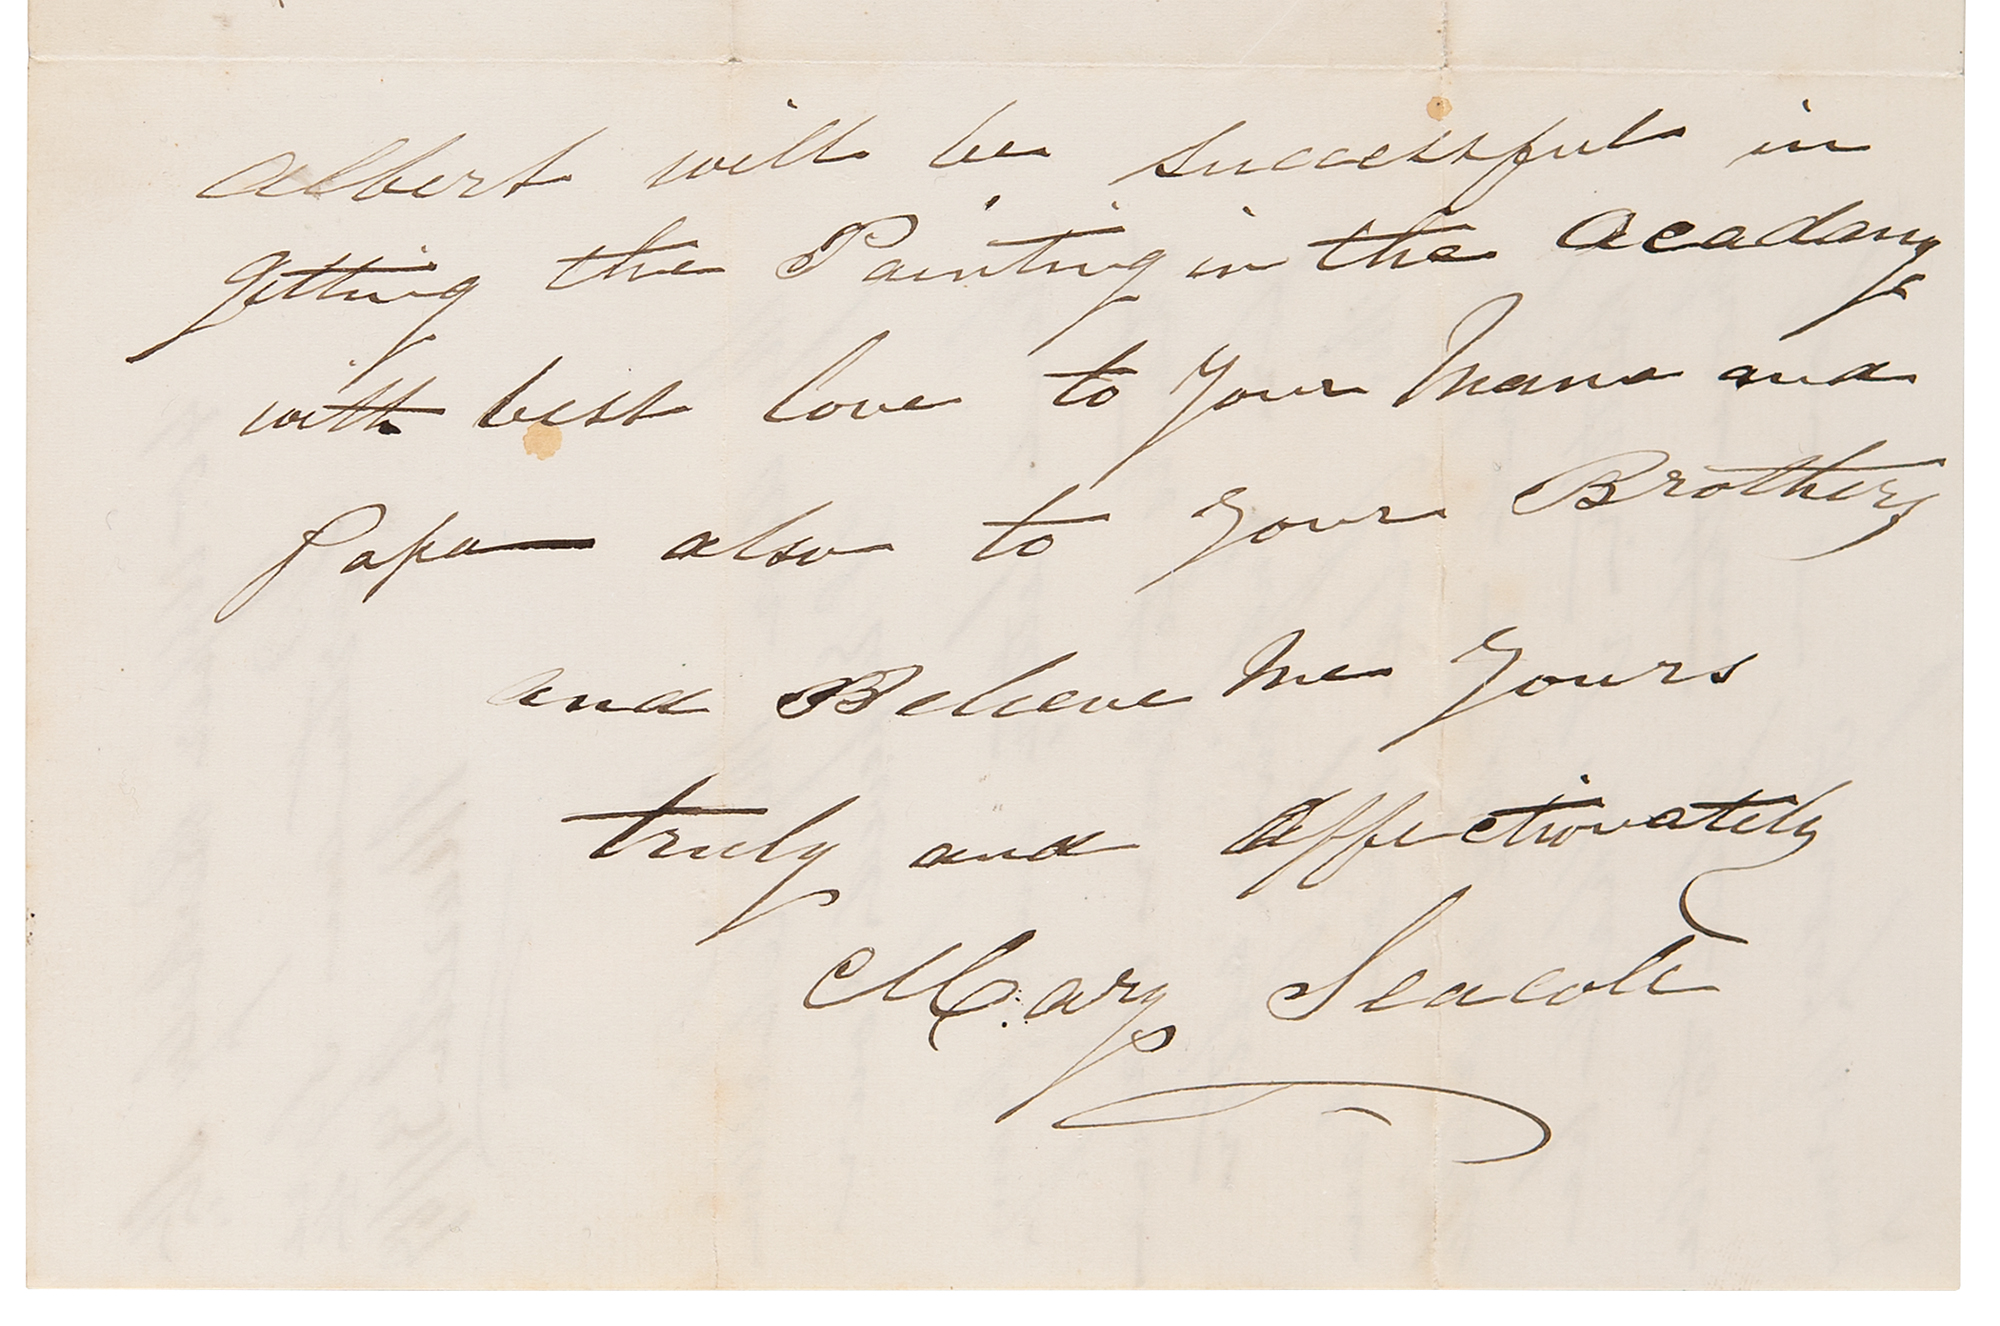 Albert will be successful in
getting the Painting in the Acadamy
with best love to Your Mama and
Papa also to Your Brothers
and Believe Me Yours
truly and Affectionately
Mary Seacole